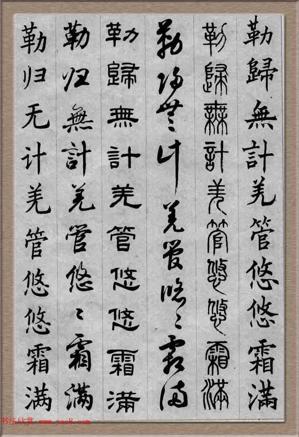 勒歸無計羌管悠悠霜滿
勒歸無計羌管悠悠霜滿
勒歸無計羌管悠〻霜滿
勒歸無計羌管悠悠霜滿
勒归無計羌管悠〻霜滿
勒归无计羌管悠悠霜满